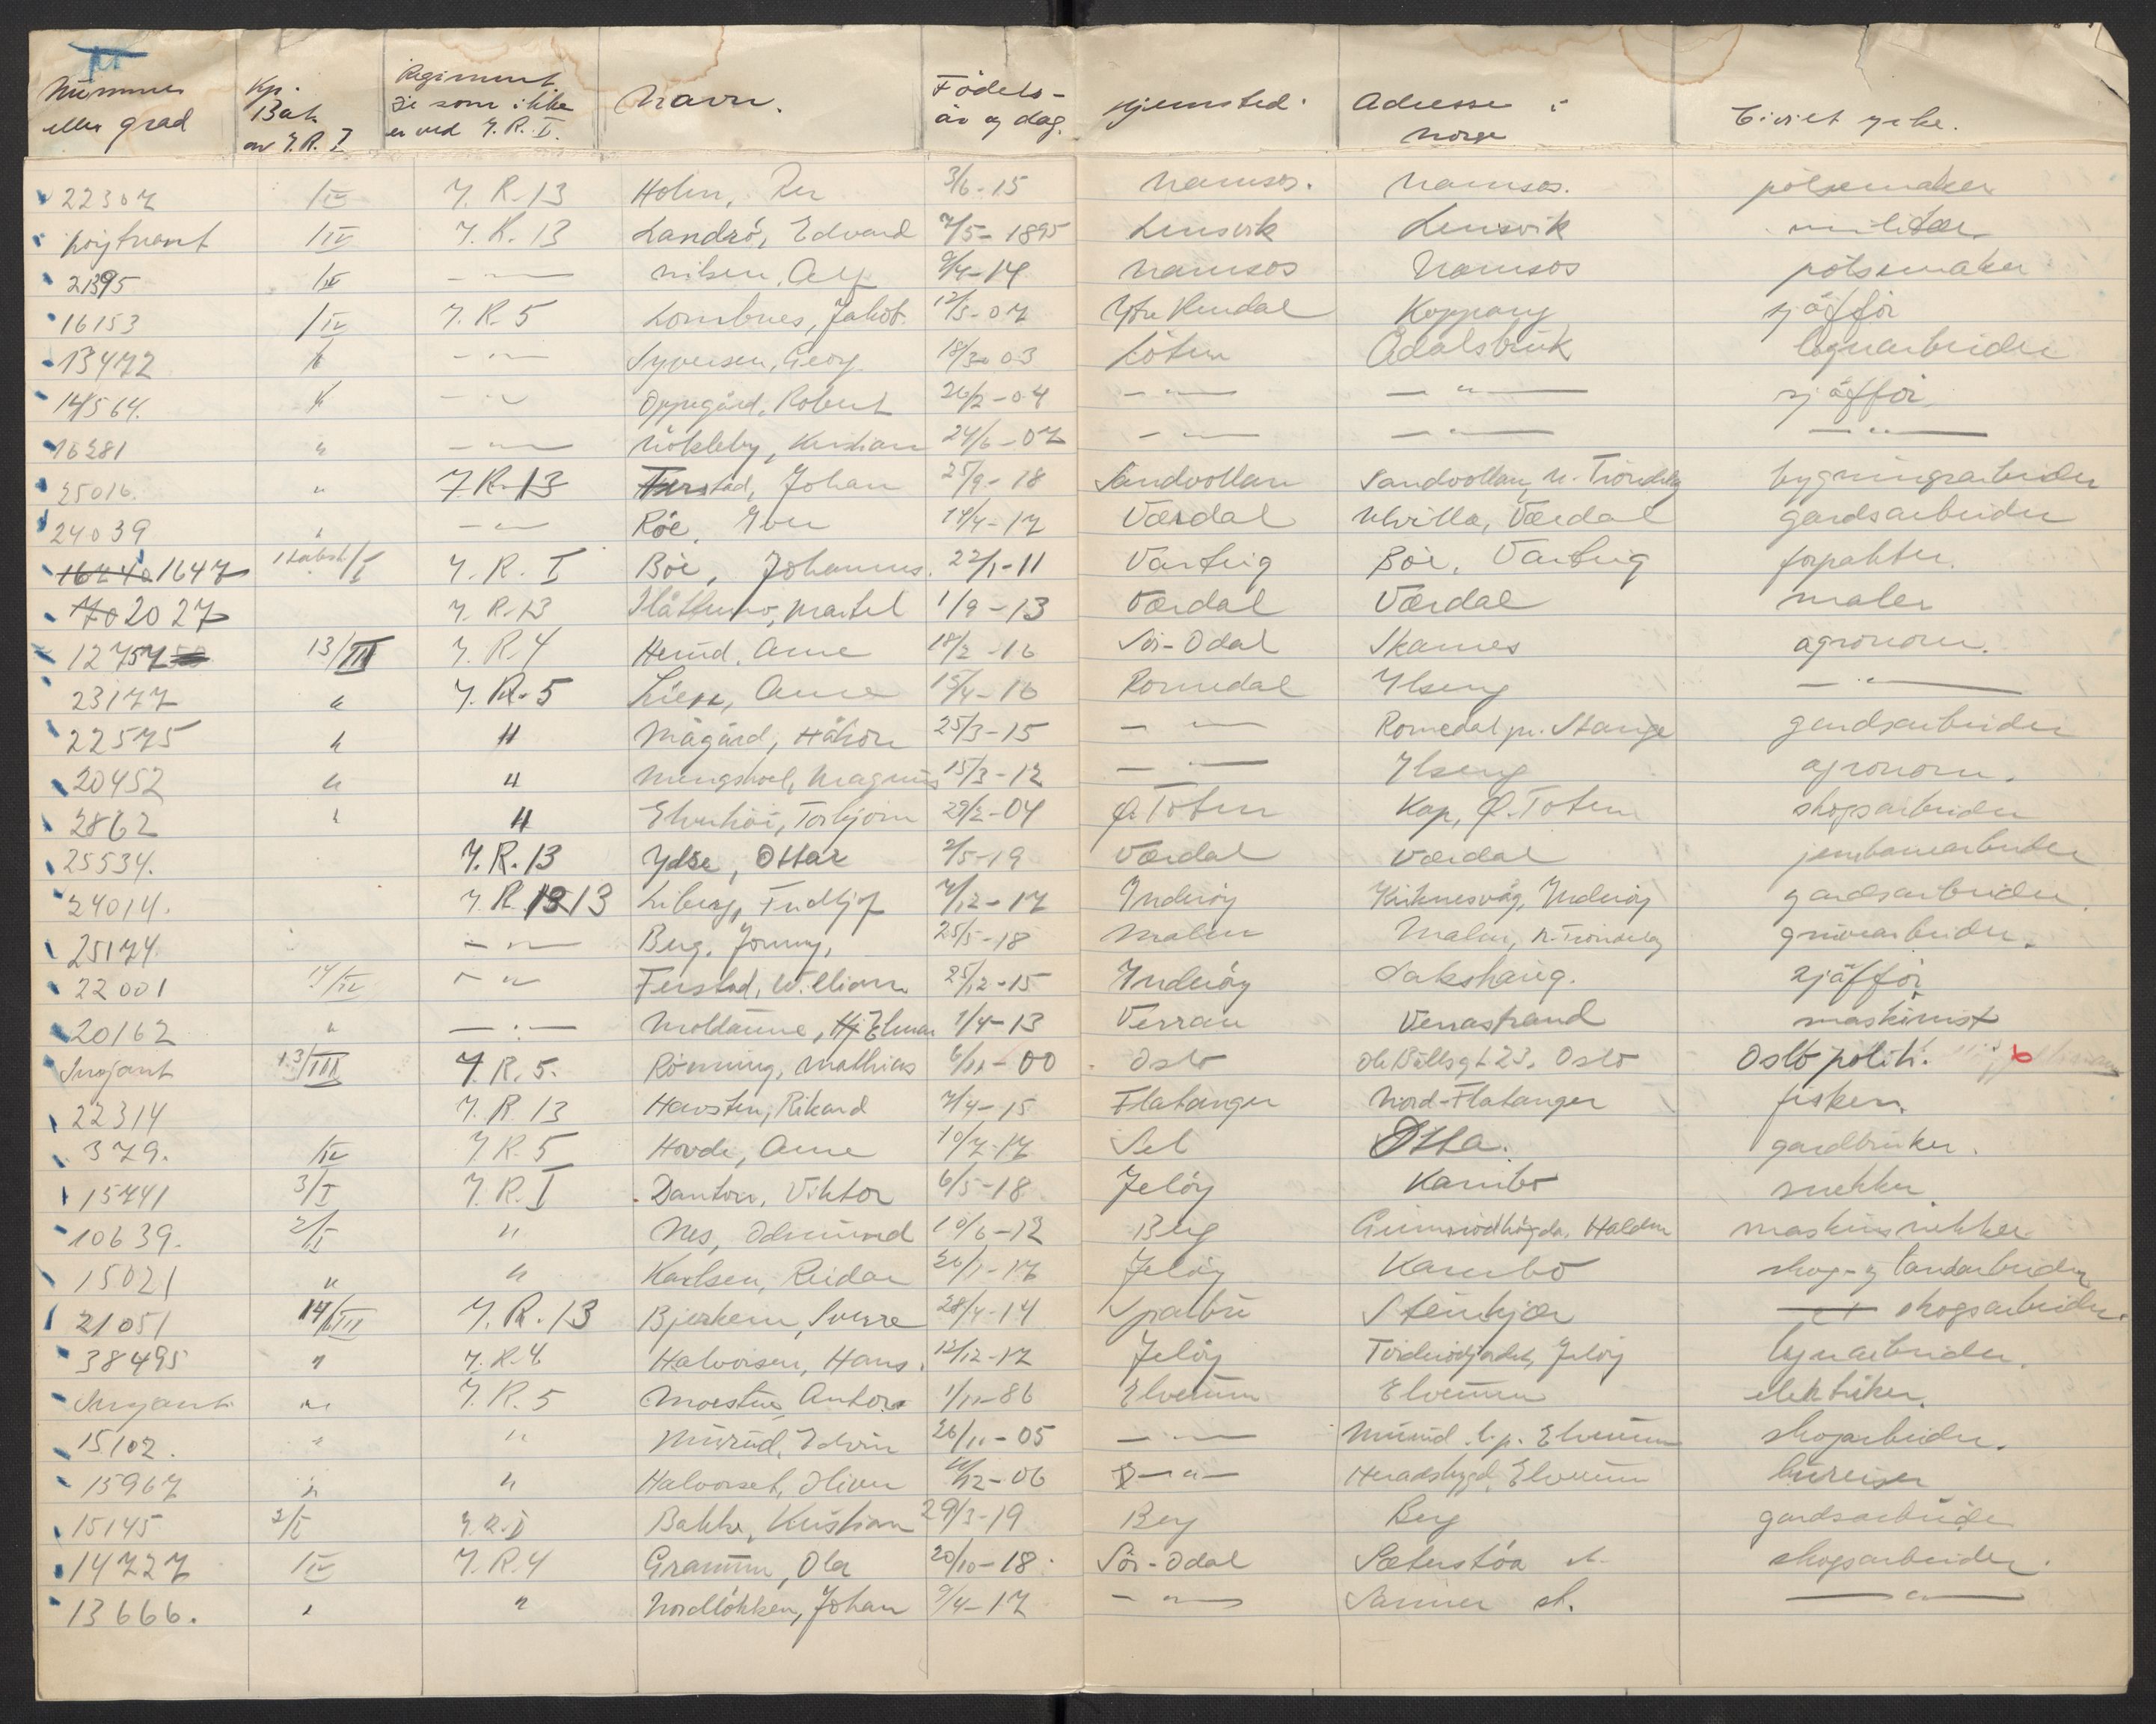 Nummer eller grad | Kp. Bat. av I.R. I | Regiment de som ikke er ved I.R. I. | Navn. | Födels- år og dag. | Hjemsted. | Adresse i Norge | Civilt yrke.
22307 | 1/IV | I. R. 13 | Holm, Per | 3/6-15 | Namsos. | Namsos. | pölsemaker
| 1/IV | I. R. 13 | Landrö, Edvard | 7/5-1895 | Lensvik | Lensvik | militær.
21395 | 1/IV | — " — | Nilsen, Alf | 9/4-14 | Namsos | Namsos | pölsemaker
16153 | 1/IV | I. R. 5 | Lombnes, Jakob. | 12/5-07 | Ytre Rendal | Koppang | sjåfför
13472 | " | — " — | Syversen, Georg | 18/3-03 | Löten | Ådalsbruk | lagerarbeider
14564. | " | — " — | Oppegård, Robert | 26/2-04 | — " — | — " — | sjåfför
16281 | " | — " — | Nökleby, Kristian | 24/6-07 | — " — | — " — | — " —
25016. | " | I. R. 13 | Ferstad, Johan | 25/9-18 | Sandvollan | Sandvollan, N. Tröndelag | bygningsarbeider
24039 | " | — " — | Röe, Iver | 14/4-17 | Værdal | Ulvilla, Værdal | gardsarbeider
1647 | 1 | I. R. I | Böe, Johannes. | 22/1-11 | Varteig | Böe, Varteig | forpakter.
2027 | | I. R. 13 | Slåttemo, Martel | 1/9-13 | Værdal | Værdal | maler
12757 | 13/III | I. R. 4 | Herud, Arne | 18/2-16 | Sör-Odal | Skarnes | agronom.
23177 | " | I. R. 5 | Lien, Arne | 15/4-16 | Romedal | Ilseng | — " —
22575 | " | " | Mågård, Håkon | 25/3-15 | — " — | Romedal pr. Stange | gardsarbeider
20452 | " | " | Mengshoel, Magnus | 15/3-12 | — " — | Ilseng | agronom.
2862 | " | " | Elvehöi, Torbjörn | 29/2-04 | Ø. Toten | Kap, Ø. Toten | skogsarbeider
25534. | | I. R. 13 | Ydse, Ottar | 2/5-19 | Værdal | Værdal | jernbanearbeider
24014. | | I. R. 13 | Liberg, Fridtjof | 7/12-17 | Inderöy | Kirknesvåg, Inderöy | gardsarbeider.
25174. | | — " — | Berg, Jonny, | 25/5-18 | Malm | Malm, N. Tröndelag | gruvearbeider.
22001 | 14/IV | — " — | Ferstad, William | 25/12-15 | Inderöy | Sakshaug. | sjåfför
20162 | " | — " — | Moldaune, Hj. Elmar | 1/4-13 | Verran | Verrastrand | maskinist
Serjant | 13/III | I. R. 5. | Rönning, Mathias | 6/11-00 | Oslo | Ole Bullsgt 23, Oslo | Oslo politi. 6
22314 | | I. R. 13 | Havsten, Rikard | 7/4-15 | Flatanger | Nord-Flatanger | fisker.
379. | 1/IV | I. R. 5 | Hovde, Arne | 10/7-17 | Sel | Otta. | gardbruker.
15741 | 3/I | I. R. I | Danton, Viktor | 6/5-18 | Jelöy | Kambo | snekker.
10639. | 2/I | " | Nes, Edmund | 10/6-12 | Berg | Grimsrödhögda, Halden | maskinsnekker
15021 | " | " | Karlsen, Reidar | 20/1-17 | Jelöy | Kambo | skog- og landarbeider
21051 | 14/III | I. R. 13 | Bjerkem, Sverre | 28/4-14 | Sparbu | Steinkjer | skogsarbeider.
38495 | " | I. R. 4 | Halvorsen, Hans. | 12/12-17 | Jelöy | Jelöy | lagerarbeider.
Serjant | " | I. R. 5 | Moestue, Anton | 1/11-86 | Elverum | Elverum | elektriker.
15102. | " | " | Murud, Edvin | 26/11-05 | — " — | Murud b.p. Elverum | skogarbeider.
15967 | " | " | Halvorset, Oliver | 11/12-06 | — " — | Heradsbygd, Elverum | bureiser
15145 | 2/I | I. R. I | Bakke, Kristian | 29/3-19 | Berg | Berg | gardsarbeider
14727 | 1/IV | I. R. 4 | Gramm, Ola | 20/10-18 | Sör-Odal | Sæterstöa st. | skogsarbeider.
13666. | " | " | Nordlökken, Johan | 9/4-17 | — " — | Sanner st. | — " —